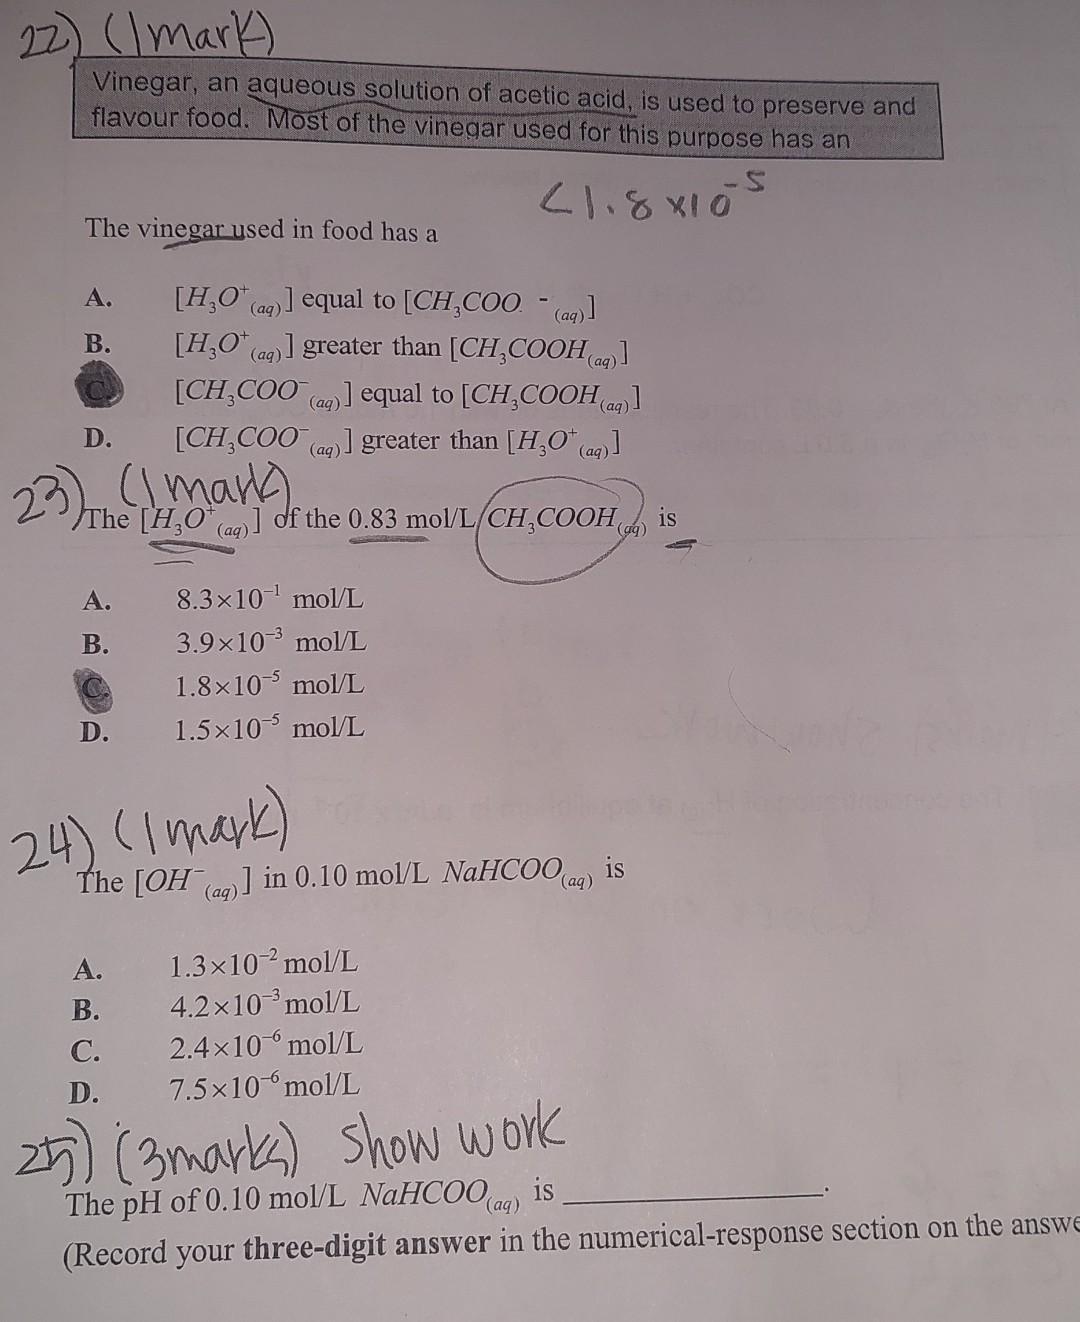 22) (1 mark)
Vinegar, an aqueous solution of acetic acid, is used to preserve and
flavour food. Most of the vinegar used for this purpose has an
<1.8 x10⁻⁵
The vinegar used in food has a
A. [H₃O⁺(aq)] equal to [CH₃COO. -(aq)]
B. [H₃O⁺(aq)] greater than [CH₃COOH(aq)]
C. [CH₃COO⁻(aq)] equal to [CH₃COOH(aq)]
D. [CH₃COO⁻(aq)] greater than [H₃O⁺(aq)]
23) (1 mark)
The [H₃O⁺(aq)] of the 0.83 mol/L CH₃COOH(aq) is
A. 8.3×10⁻¹ mol/L
B. 3.9×10⁻³ mol/L
C. 1.8×10⁻⁵ mol/L
D. 1.5×10⁻⁵ mol/L
24) (1 mark)
The [OH⁻(aq)] in 0.10 mol/L NaHCOO(aq) is
A. 1.3×10⁻² mol/L
B. 4.2×10⁻³ mol/L
C. 2.4×10⁻⁶ mol/L
D. 7.5×10⁻⁶ mol/L
25) (3 marks) Show work
The pH of 0.10 mol/L NaHCOO(aq) is ____________.
(Record your three-digit answer in the numerical-response section on the answe